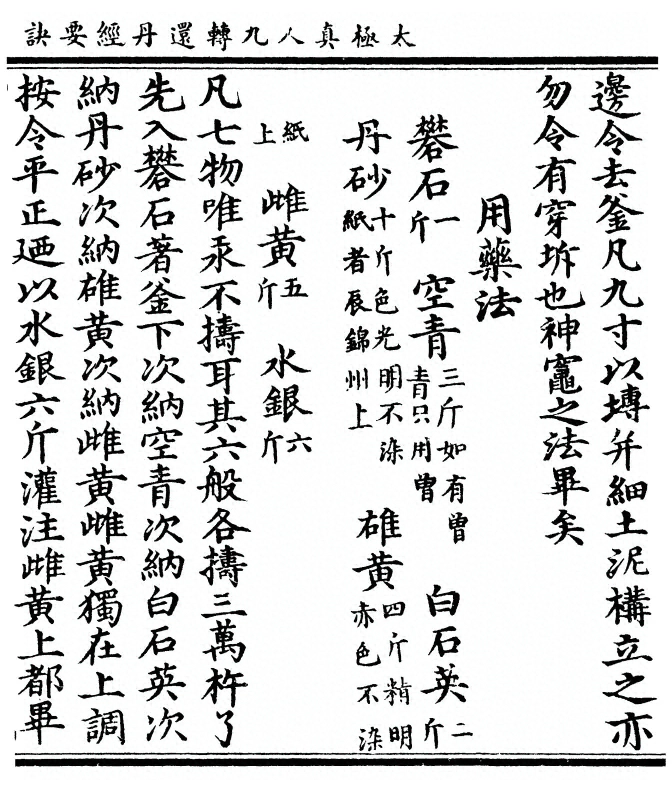 太極真人九轉還丹經要訣
邊令去釜凡九寸以塼并細土泥構立之亦
勿令有穿坼也神竈之法畢矣
用藥法
礬石一斤 空青三斤如有曾青只用曾 白石英二斤
丹砂十斤色光明不染紙者辰錦州上 雄黃四斤精明赤色不染
紙上 雌黃五斤 水銀六斤
凡七物唯汞不擣耳其六般各擣三萬杵了
先入礬石著釜下次納空青次納白石英次
納丹砂次納雄黃次納雌黃雌黃獨在上調
按令平正迺以水銀六斤灌注雌黃上都畢